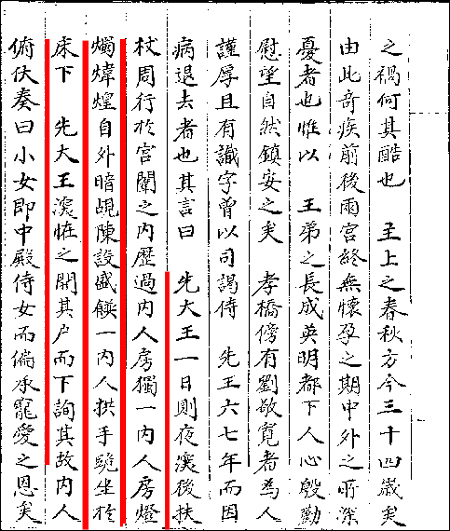 之禍何其酷也 主上之春秋方今三十四歲矣
由此奇疾前後兩宮終無懷孕之期中外之所深
憂者也惟以 王弟之長成英明都下人心慇勤
慰望自然鎮安之矣 孝橋傍有劉敬寬者爲人
謹厚且有識字曾以司謁侍 先王六七年而因
病退去者也其言曰 先大王一日則夜深後扶
杖周行於宮闈之內歷過內人房獨一內人房燈
燭煒煌自外暗覘陳設盛饌一內人拱手跪坐於
床下 先大王深恠之開其户而下詢其故內人
俯伏奏曰小女即中殿侍女而偏承寵愛之恩矣